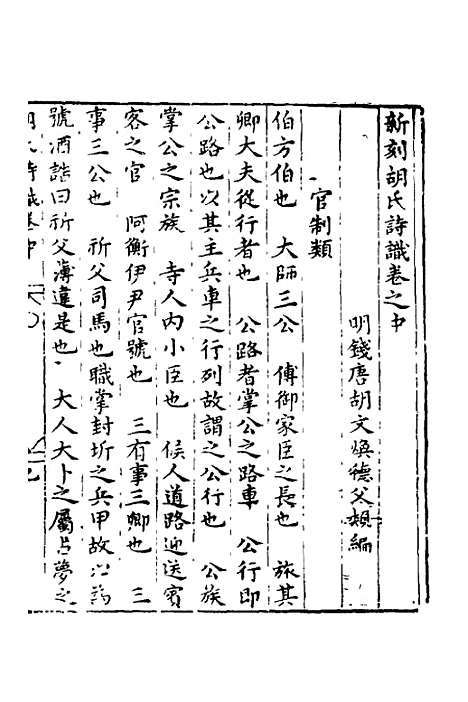 新刻胡氏詩識卷之中
明錢唐胡文煥德父類編
官制類
伯方伯也 大師三公 傅御家臣之長也 旅其
卿大夫從行者也 公路者掌公之路車 公行即
公路也以其主兵車之行列故謂之公行也 公族
掌公之宗族 寺人內小臣也 候人道路迎送賓
客之官 阿衡伊尹官號也 三有事三卿也 三
事三公也 祈父司馬也職掌封圻之兵甲故以為
號酒誥曰祈父薄違是也 大人大卜之屬占夢之